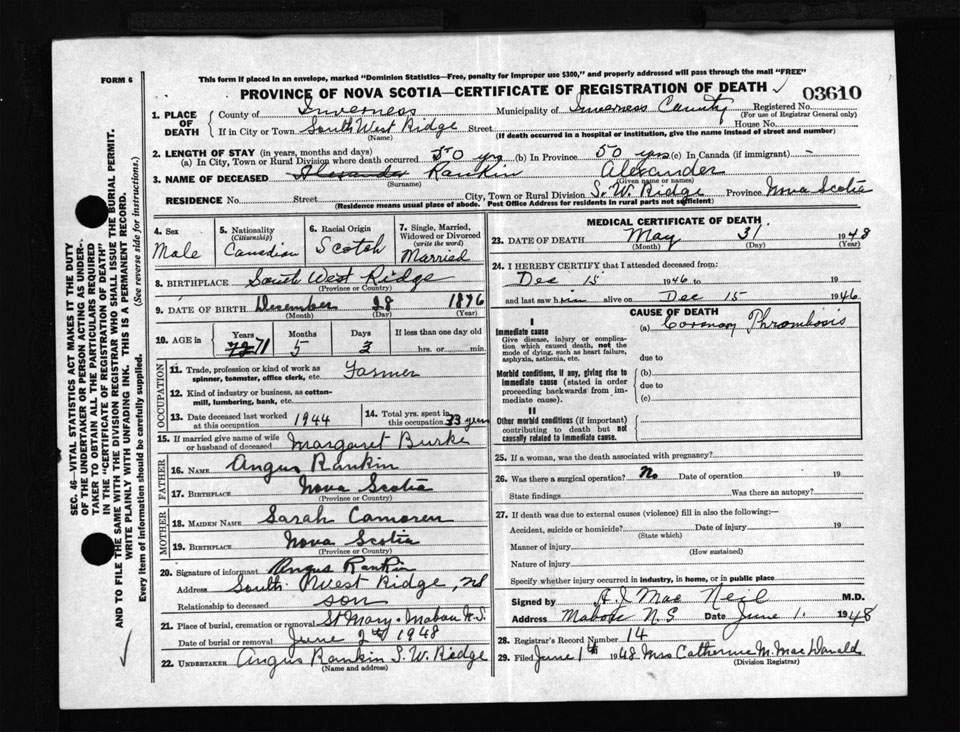 FORM 6
This form if placed in an envelope, marked "Dominion Statistics—Free, penalty for improper use $300," and properly addressed will pass through the mail "FREE"
PROVINCE OF NOVA SCOTIA—CERTIFICATE OF REGISTRATION OF DEATH
03610
1. PLACE OF DEATH
County of Inverness Municipality of Inverness County Registered No.
(For use of Registrar General only)
If in City or Town South West Ridge Street House No.
(Name) (If death occurred in a hospital or institution, give the name instead of street and number)
2. LENGTH OF STAY (in years, months and days)
(a) In City, Town or Rural Division where death occurred 50 yrs (b) In Province 50 yrs (c) In Canada (if immigrant) -
3. NAME OF DECEASED Alexander Rankin Alexander
(Surname) (Given name or names)
RESIDENCE No. Street City, Town or Rural Division S. W. Ridge Province Nova Scotia
(Residence means usual place of abode. Post Office Address for residents in rural parts not sufficient)
4. Sex Male
5. Nationality (Citizenship) Canadian
6. Racial Origin Scotch
7. Single, Married, Widowed or Divorced (write the word) Married
8. BIRTHPLACE South West Ridge
(Province or Country)
9. DATE OF BIRTH December 28 1876
(Month) (Day) (Year)
10. AGE in Years 72 71 Months 5 Days 3 If less than one day old hrs. or min.
OCCUPATION
11. Trade, profession or kind of work as spinner, teamster, office clerk, etc. Farmer
12. Kind of industry or business, as cotton-mill, lumbering, bank, etc.
13. Date deceased last worked at this occupation 1944
14. Total yrs. spent in this occupation 33 years
15. If married give name of wife or husband of deceased Margaret Burke
FATHER
16. NAME Angus Rankin
17. BIRTHPLACE Nova Scotia
(Province or Country)
MOTHER
18. MAIDEN NAME Sarah Camoren
19. BIRTHPLACE Nova Scotia
(Province or Country)
20. Signature of informant Angus Rankin
Address South West Ridge, NS
Relationship to deceased son
21. Place of burial, cremation or removal St Mary. Mabou N.S.
Date of burial or removal June 2nd 1948
22. UNDERTAKER Angus Rankin S. W. Ridge
(Name and address)
MEDICAL CERTIFICATE OF DEATH
23. DATE OF DEATH May 31 1948
(Month) (Day) (Year)
24. I HEREBY CERTIFY that I attended deceased from:
Dec 15 1946 to 19
and last saw him alive on Dec 15 1946
CAUSE OF DEATH
I
Immediate cause
Give disease, injury or complication which caused death, not the mode of dying, such as heart failure, asphyxia, asthenia, etc.
(a) Coronary Thrombosis
due to
Morbid conditions, if any, giving rise to immediate cause (stated in order proceeding backwards from immediate cause).
(b)
due to
(c)
II
Other morbid conditions (if important) contributing to death but not causally related to immediate cause.
25. If a woman, was the death associated with pregnancy?
26. Was there a surgical operation? No Date of operation 19
State findings Was there an autopsy?
27. If death was due to external causes (violence) fill in also the following:—
Accident, suicide or homicide? Date of injury 19
(State which)
Manner of injury
(How sustained)
Nature of injury
Specify whether injury occurred in industry, in home, or in public place
Signed by A J Mac Neil M.D.
Address Mabou N.S Date June 1. 1948
28. Registrar's Record Number 14
29. Filed June 1th 1948 Mrs Catherine M. MacDonald
(Division Registrar)
SEC. 46—VITAL STATISTICS ACT MAKES IT THE DUTY OF THE UNDERTAKER OR PERSON ACTING AS UNDERTAKER TO OBTAIN ALL THE PARTICULARS REQUIRED IN THE "CERTIFICATE OF REGISTRATION OF DEATH" AND TO FILE THE SAME WITH THE DIVISION REGISTRAR WHO SHALL ISSUE THE BURIAL PERMIT.
WRITE PLAINLY WITH UNFADING INK. THIS IS A PERMANENT RECORD.
Every item of information should be carefully supplied. (See reverse side for instructions.)